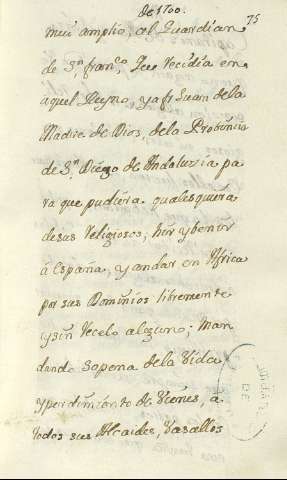 de 1700.
75
mui amplio, al Guardian
de Sn. franco. que recidia en
aquel Reyno, ya fr Juan dela
Madre de Dios, dela Probincia
de Sn. Diego de Andaluzia pa
ra que pudiera qualesquiera
desus Religiosos, hir y benir
á España, y andar en Africa
por sus Dominios libremente
y sin recelo alguno; Man
dando sopena dela Vida
y perdimiento de vienes, a
todos sus Alcaides, Vasallos